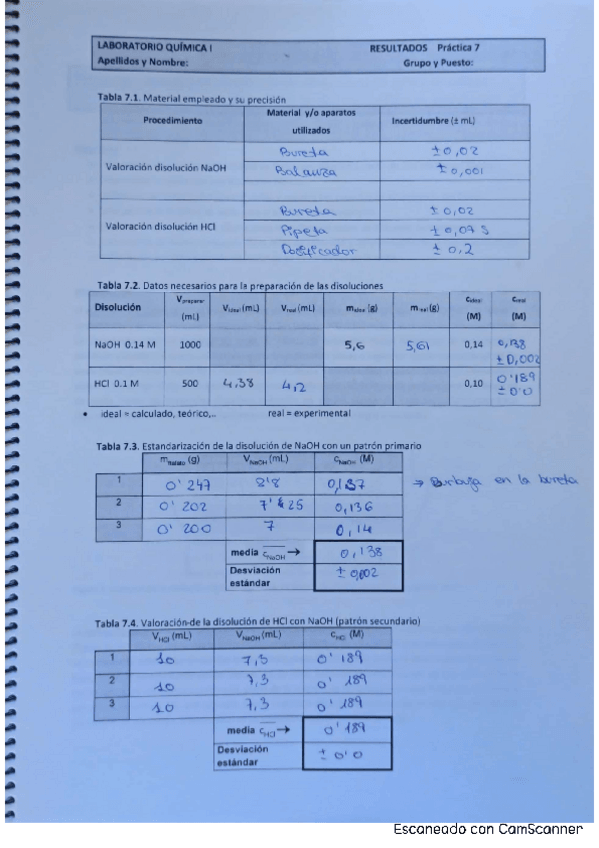 LABORATORIO QUÍMICA I RESULTADOS Práctica 7
Apellidos y Nombre: Grupo y Puesto:
Tabla 7.1. Material empleado y su precisión
Procedimiento Material y/o aparatos utilizados Incertidumbre (± mL)
Valoración disolución NaOH
Bureta ±0,02
Balanza ±0,001
Valoración disolución HCl
Bureta ±0,02
Pipeta
Dosificador ±0,2
Tabla 7.2. Datos necesarios para la preparación de las disoluciones
Disolución Vpreparar (mL) Videal (mL) Vreal (mL) mideal (g) mreal (g) cideal (M) creal (M)
NaOH 0.14 M 1000 5,6 5,61 0,14 0,138 ±0,002
HCl 0.1 M 500 4,38 4,12 0,10 0'189 ±0'0
• ideal = calculado, teórico,… real = experimental
Tabla 7.3. Estandarización de la disolución de NaOH con un patrón primario
mftalato (g) VNaOH (mL) cNaOH (M)
1 0'247 8'8 0,137 → Burbuja en la bureta
2 0'202 0,136
3 0'200 7 0,14
media cNaOH → 0,138
Desviación estándar ± 0,002
Tabla 7.4. Valoración de la disolución de HCl con NaOH (patrón secundario)
VHCl (mL) VNaOH (mL) cHCl (M)
1 10 7,3 0'189
2 10 7,3 0'189
3 10 7,3 0'189
media cHCl → 0'189
Desviación estándar ± 0'0
Escaneado con CamScanner